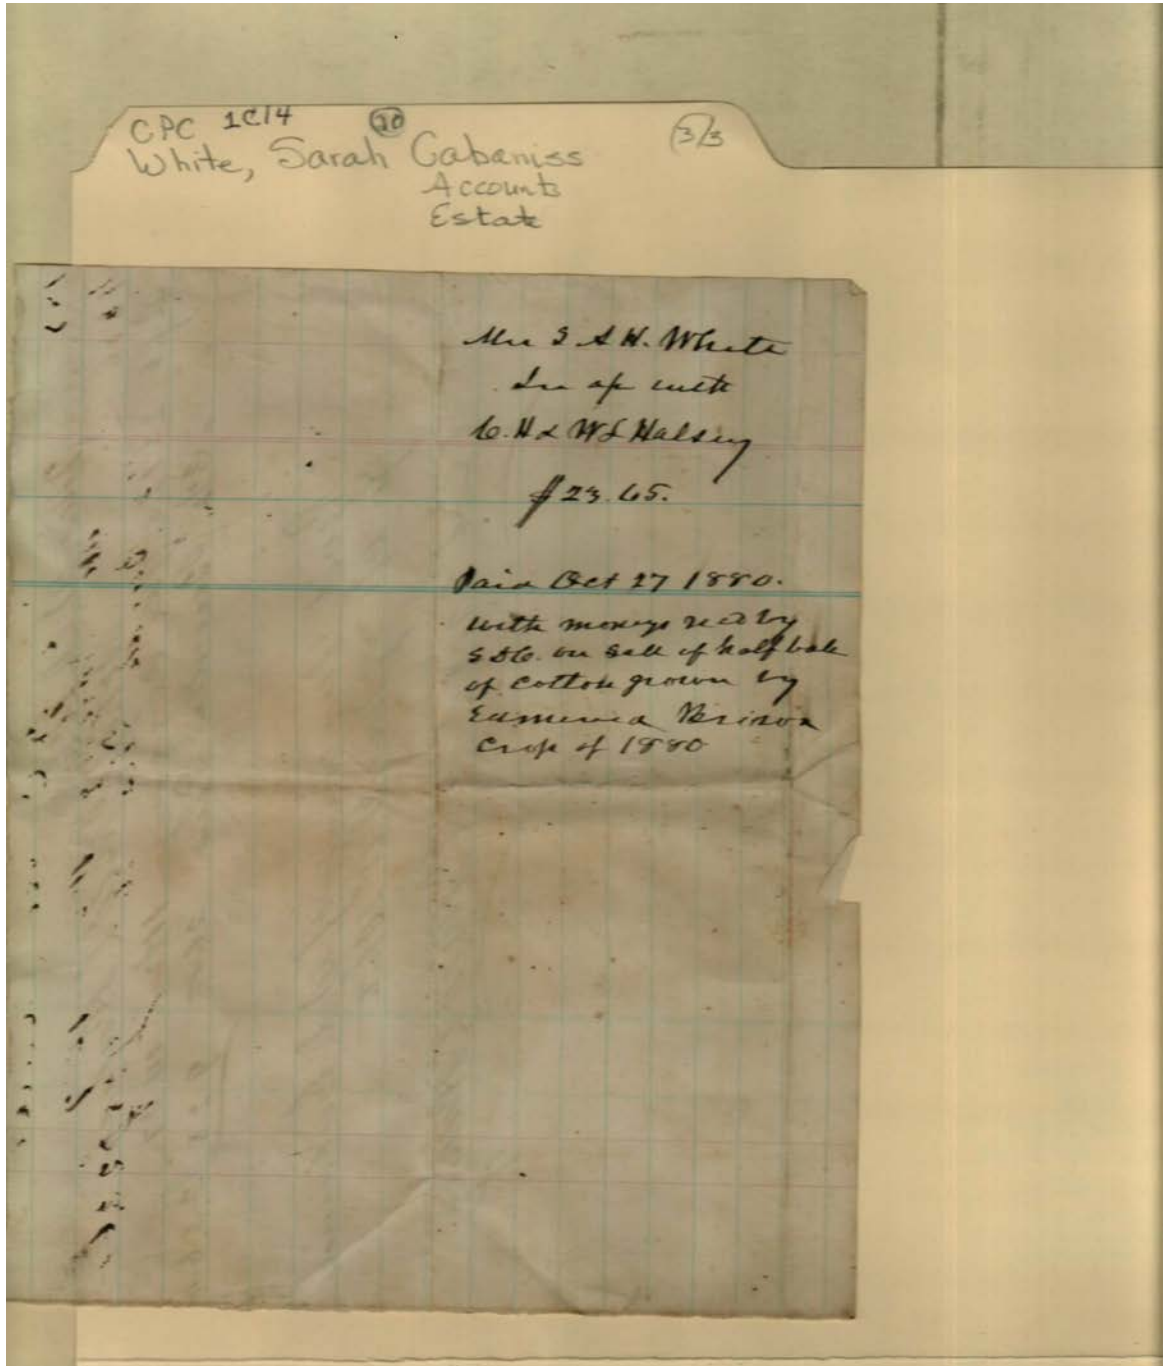 CPC 1C14 20 3/3
White, Sarah Cabaniss
Accounts
Estate
Mrs S A H. White
In a/c with
C. H & W L Halsey
$23.65.
Paid Oct 27 1880.
with moneys recd by
S D C. on sale of half bale
of cotton grown by
Brison
Crop of 1880